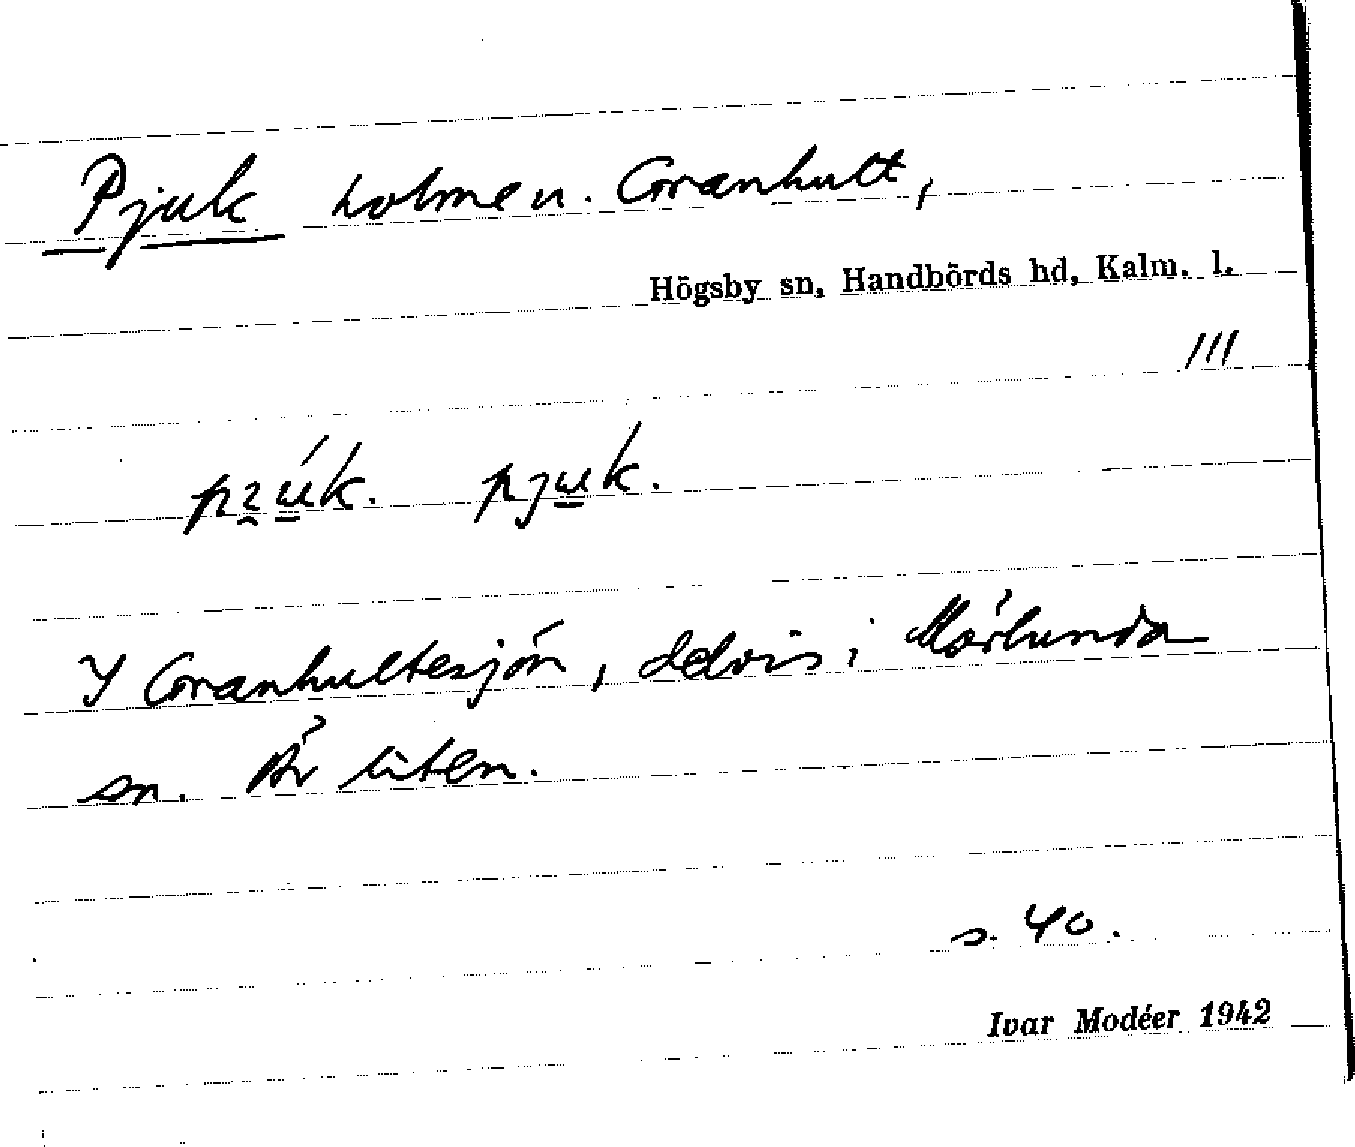 Pjuk holmen. Granhult,
Högsby sn, Handbörds hd, Kalm. l.
III
pjuk.
I Granhultesjön, delvis i Mörlunda
sn. Är liten.
s. 40.
Ivar Modéer 1942